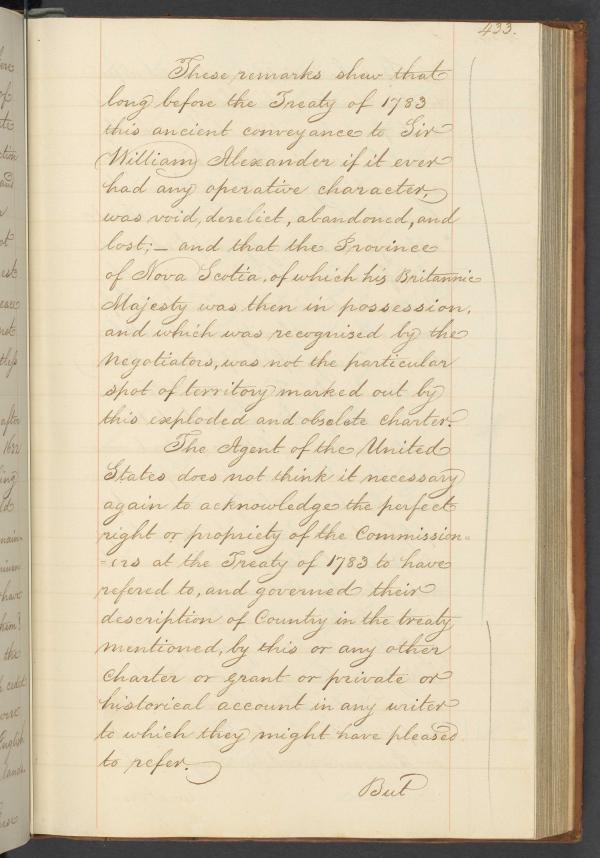 433.
These remarks shew that
long before the Treaty of 1783
this ancient conveyance to Sir
William Alexander if it ever
had any operative character,
was void, derelict, abandoned, and
lost; — and that the Province
of Nova Scotia, of which his Britannic
Majesty was then in possession,
and which was recognised by the
Negotiators, was not the particular
spot of territory marked out by
this exploded and obsolete charter.
The Agent of the United
States does not think it necessary
again to acknowledge the perfect
right or propriety of the Commission-
-ers at the Treaty of 1783 to have
refered to, and governed their
description of Country in the treaty
mentioned, by this or any other
Charter or grant or private or
historical account in any writer
to which they might have pleased
to refer.
But